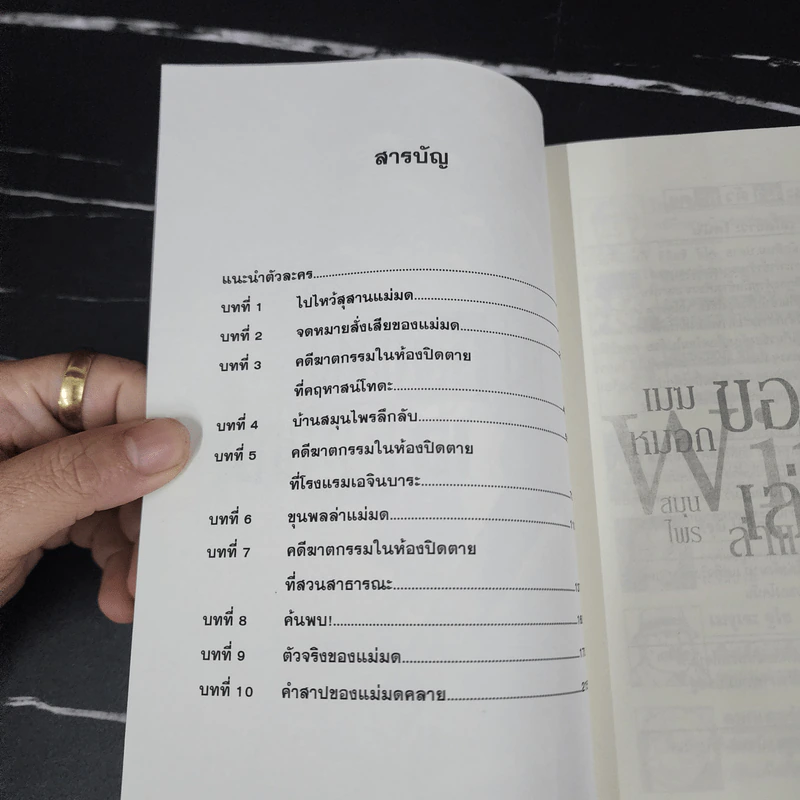 สารบัญ
แนะนำตัวละคร
บทที่ 1 ไปไหว้สุสานแม่มด
บทที่ 2 จดหมายสั่งเสียของแม่มด
บทที่ 3 คดีฆาตกรรมในห้องปิดตาย
ที่คฤหาสน์โทดะ
บทที่ 4 บ้านสมุนไพรลึกลับ
บทที่ 5 คดีฆาตกรรมในห้องปิดตาย
ที่โรงแรมเอจินบาระ
บทที่ 6 ขุนพลล่าแม่มด
บทที่ 7 คดีฆาตกรรมในห้องปิดตาย
ที่สวนสาธารณะ
บทที่ 8 ค้นพบ!
บทที่ 9 ตัวจริงของแม่มด
บทที่ 10 คำสาปของแม่มดคลาย
เมฆ
หมอก
สมุน
ไพร